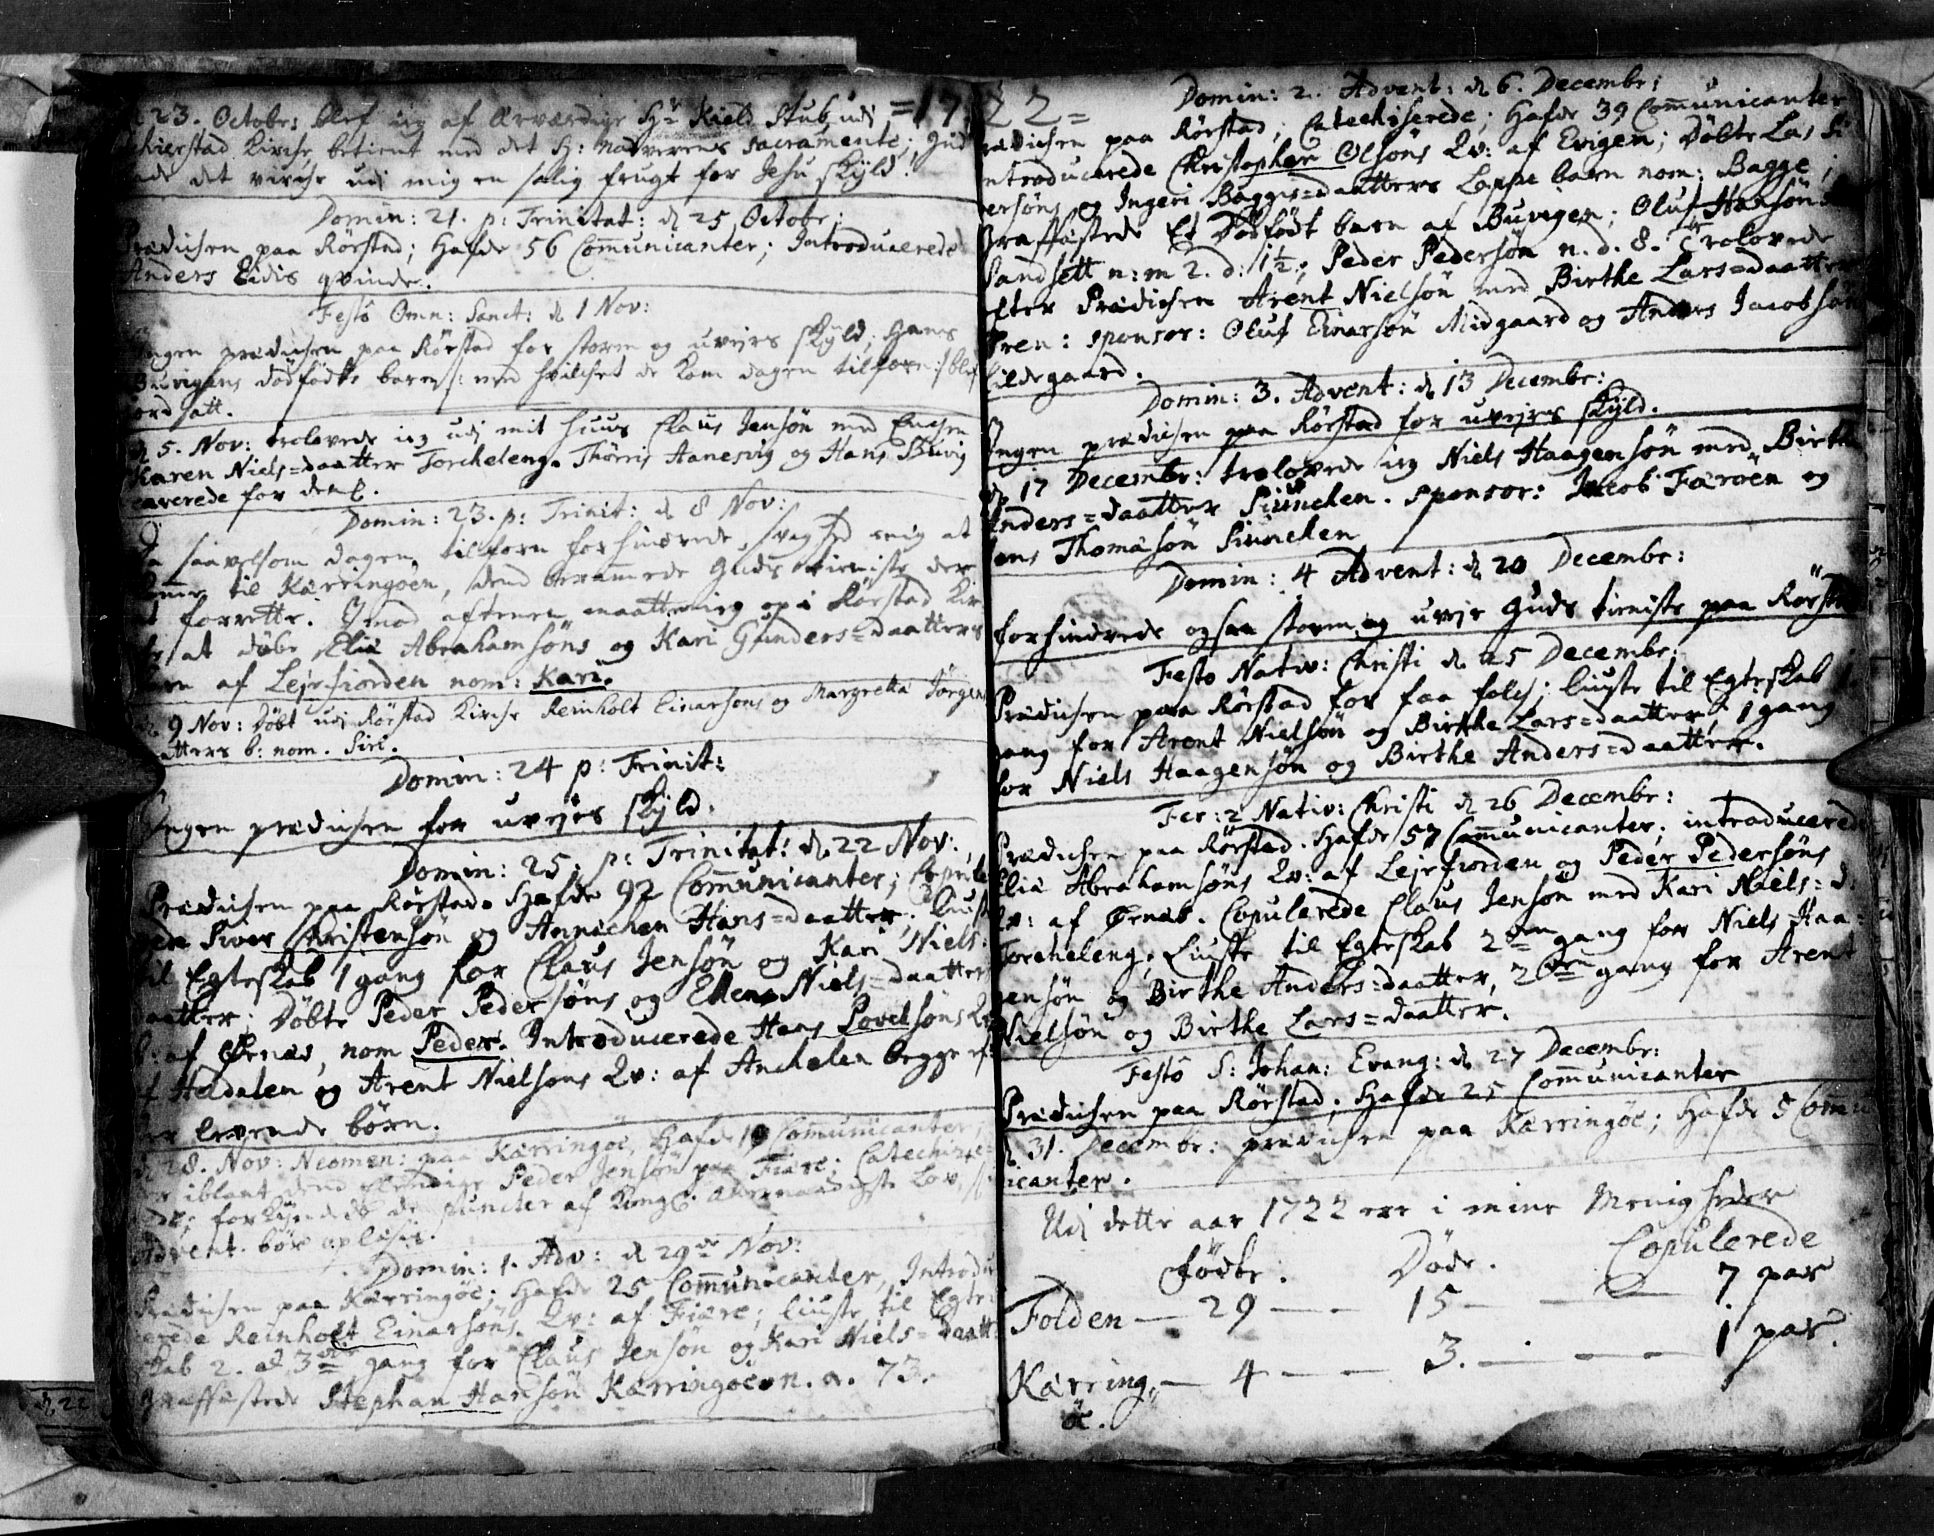 =17
23. Octobr: blef ieg af Ærværdige Hr Kield Stub, udi
Kirche, betient med det H: Nadverens Sacramente; Gud
lade det virche udi mig en salig frugt for Jesu skyld!
Domin: 21. p: Trinitat: d. 25 Octobr:
Prædichen paa Rörstad; Hafde 56 Communicanter; Introducerede
Anders Eidis qvinde.
Festô Omn: Sanct: d. 1 Nov:
Ingen prædichen paa Rörstad for storm og uvejrs skyld; Hans
Buvigens dödfödte barn /: med hvilchet de kom dagen tilforn :/ blef
jordsatt.
d. 5. Nov: trolovede ieg udi mit Huus Claus Jensön med Enchen
Karen Niels=daatter Torcheleng. Thörris Aanesvig og Hans Buvig
caverede for dem.
Domin: 23. p: Trinit: d. 8 Nov:
Da saavelsom dagen tilforn forhindrede svaghed mig at
komme til Kærringöen, dend berammede Guds tieniste der
at forrette. Imod aftenen maatte ieg op i Rörstad Kir-
che at döbe Eliæ Abrahamsöns og Kari Gunders=daatters
barn af Lejrfiorden nom: Kari.
d. 9 Nov: Döbt udi Rörstad Kirche Reinholt Einarsöns og Margretha Jörgens
daatters b: nom. Siri.
Domin: 24 p: Trinit:
Ingen prædichen for uvejrs skyld.
Domin: 25. p: Trinitat: d. 22 Nov:
Prædichen paa Rörstad. Hafde 92 Communicanter; Copule-
rede Siver Christensön og Annichen Hans=daatter; liuste
til Egteskab 1 gang for Claus Jensön og Kari Niels=
daatter; Döbte Peder Pedersöns og Ellen Niels=daatters
b: af Örnes, nom Peder. Introducerede Hans Povelsöns Qv:
af Heldalen og Arent Nielsöns Qv: af Anchelen begge ef-
ter levende börn.
d. 28. Nov: Neomen: paa Kærringöe, Hafde 19 Communicanter,
der iblant dend Peder Jensön paa Fiære; Catechize-
rede; forkyndede de puncter af Kongl: Lov, som
Advent. bör oplæsis.
Domin: 1. Adv: d. 29de Nov:
Prædichen paa Kærringöe; Hafde 25 Communicanter, Introdu-
cerede Reinholt Einarsöns Qv: af Fiære; liuste til Egte-
skab 2. et 3die gang for Claus Jensön og Kari Niels=daatt:
Graffæstede Stephan Hansön Kærringöe n. a. 73.
22=
Domin: 2. Advent: d. 6. Decembr:
Prædichen paa Rörstad; Catechiserede; Hafde 39 Communicanter
Introducerede Christopher Olsöns Qv: af Evigen; Döbte Las Si-
versöns og Ingeri Bagges=daatters Lappe barn nom: Bagge;
Graffæstede Et Dödfödt barn af Buvigen; Oluf Hansön
Sandsett n: m 2. d: 1½; Peder Pedersön n. d. 8. Trolovede
efter Prædichen Arent Nielsön med Birthe Lars=daatter
sponsor: Oluf Einarsön Midgaard og Anders Jacobsön
Lildegaard.
Domin: 3. Advent: d. 13 Decembr:
Ingen prædichen paa Rörstad for uvejrs skyld.
d. 17 Decembr: trolovede ieg Niels Haagensön med Birthe
Anders=daatter Siünchen. sponsor: Jacob Færöen og
Jens Thomasön Siünchen
Domin: 4 Advent: d. 20 Decembr:
forhindrede ogsaa storm og uvejr Guds tieniste paa Rörstad
Festo Nativ: Christi d. 25 Decembr:
Prædichen paa Rörstad for faa folch; liuste til Egteskab 1
gang for Arent Nielsön og Birthe Lars=daatter; 1 gang
for Niels Haagensön og Birthe Anders=daatter.
Fer: 2 Nativ: Christi d. 26 Decembr:
Prædichen paa Rörstad. Hafde 57 Communicanter; introducerede
Eliæ Abrahamsöns Qv: af Lejrfiorden og Peder Pedersöns
Qv: af Örnes. Copulerede Claus Jensön med Kari Niels: d:
Torcheleng; Liuste til Egteskab 2den gang for Niels Haa-
gensön og Birthe Anders=daatter, 2den gang for Arent
Nielsön og Birthe Lars=daatter.
Festô S: Johan: Evang: d. 27 Decembr:
Prædichen paa Rörstad; Hafde 25 Communicanter
d. 31. Decembr: prædichen paa Kærringöe; Hafde 8 Commu-
nicanter.
Udi dette aar 1722 ere i mine Menigheder
födte. Döde. Copulerede
Folden — 29 — — 15 — — — 7 par
Kærring — 4 — — 3. — — — 1 par.
öe.